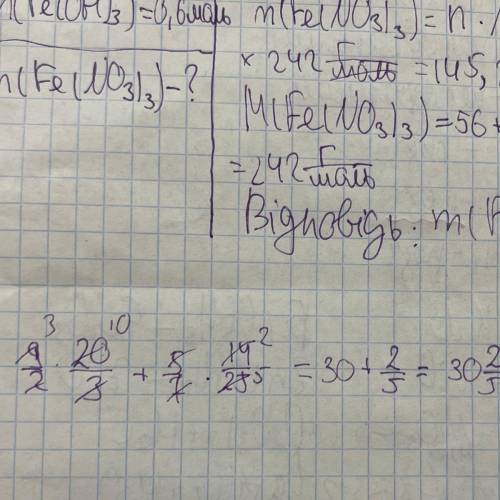 n(Fe(OH)3)=0,6моль
m(Fe(NO3)3)-?
m(Fe(NO3)3)=n·
×242 г/моль =145,
M(Fe(NO3)3)=56+
=242 г/моль
Відповідь: m(F
9/2 · 20/3 + 5/7 · 14/25 = 30+2/5 = 30 2/5
3 10 2 5